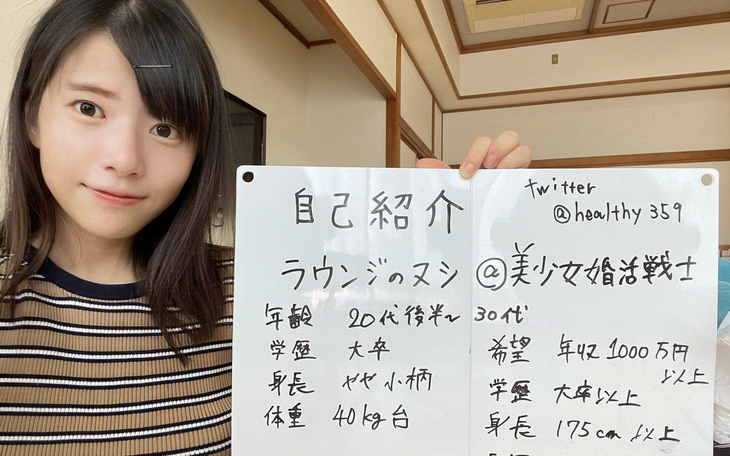 自己紹介
twitter
@healthy359
ラウンジのヌシ @美少女婚活戦士
年齢 20代後半~30代
学歴 大卒
身長 やや小柄
体重 40kg台
希望 年収1000万円以上
学歴 大卒以上
身長 175cm以上